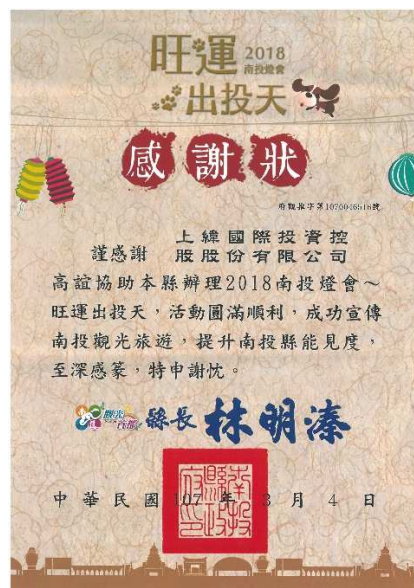 旺運 2018
南投燈會
出投天
感謝狀
府觀推字第1070046518號
謹感謝 上緯國際投資控
股股份有限公司
高誼協助本縣辦理2018南投燈會~
旺運出投天,活動圓滿順利,成功宣傳
南投觀光旅遊,提升南投縣能見度,
至深感篆,特申謝忱。
觀光首都 縣長 林明溱
南投縣政府印
中華民國107年3月4日